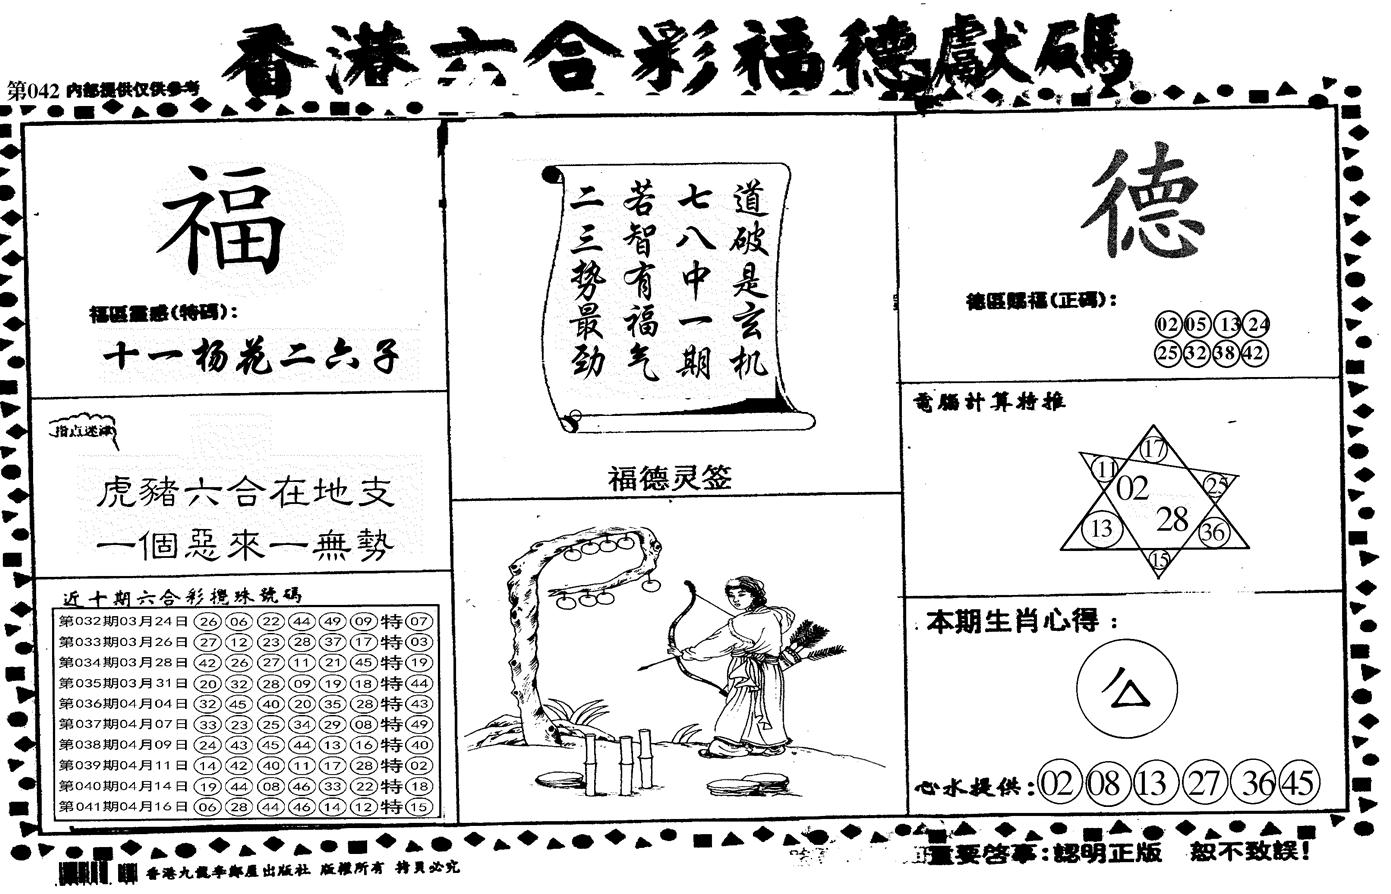 香港六合彩福德獻碼
第042 内部提供仅供参考
福
福區靈感(特碼):
十一杨花二六子
指点迷津
虎豬六合在地支
一個惡來一無勢
近十期六合彩攪珠號碼
第032期03月24日 26 06 22 44 49 09 特 07
第033期03月26日 27 12 23 28 37 17 特 03
第034期03月28日 42 26 27 11 21 45 特 19
第035期03月31日 20 32 28 09 19 18 特 44
第036期04月04日 32 45 40 20 35 28 特 43
第037期04月07日 33 23 25 34 29 08 特 49
第038期04月09日 24 43 45 44 13 16 特 40
第039期04月11日 14 42 40 11 17 28 特 02
第040期04月14日 19 44 08 46 33 22 特 18
第041期04月16日 06 28 44 46 14 12 特 15
道破是玄机
七八中一期
若智有福气
二三势最劲
福德灵签
德
德區賜福(正碼):
02 05 13 24
25 32 38 42
電腦計算特推
17
11
02
25
28
13
36
15
本期生肖心得:
心水提供: 02 08 13 27 36 45
重要啓事:認明正版 恕不致誤!
香港九龍
出版社 版權所有 拷貝必究